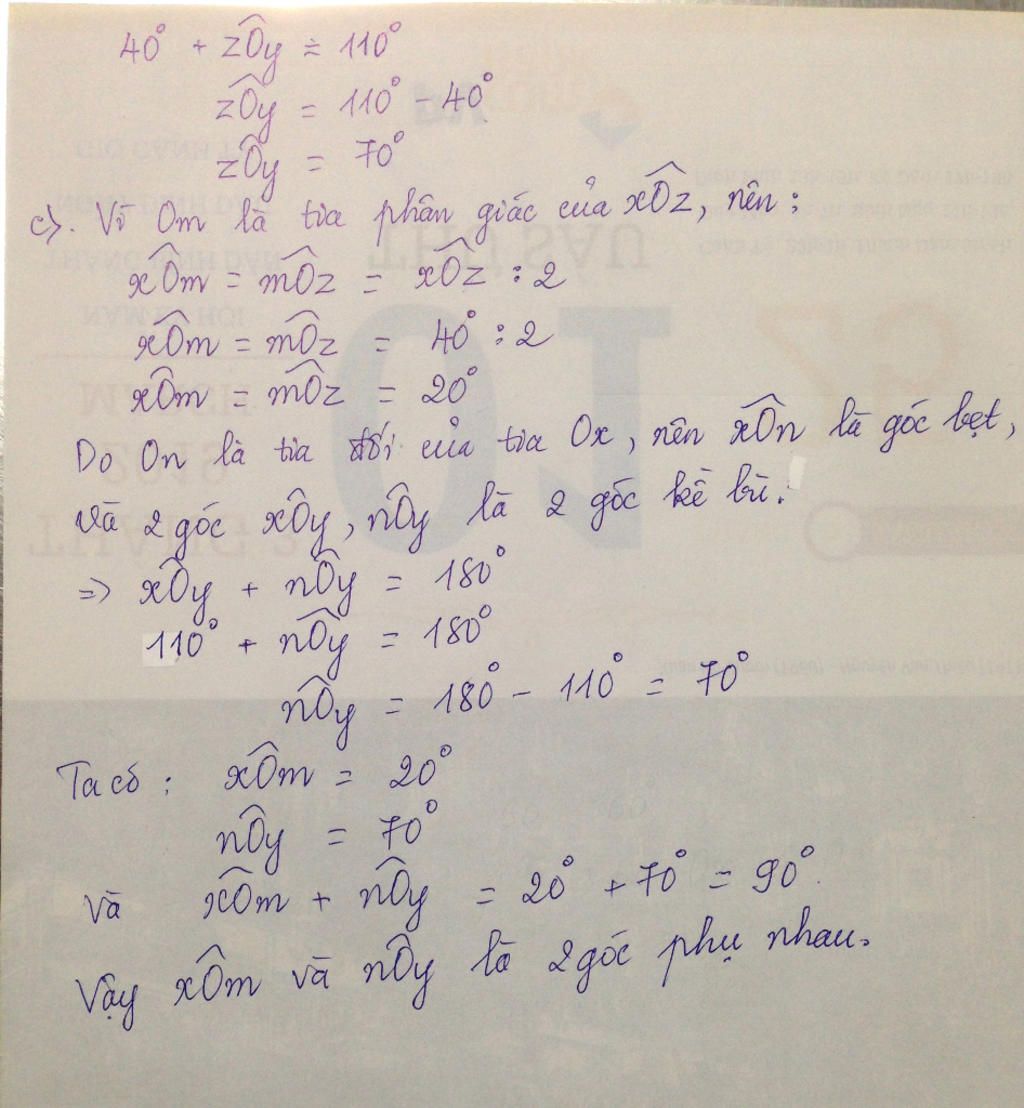 40° + zÔy = 110°
zÔy = 110° - 40°
zÔy = 70°
c). Vì Om là tia phân giác của xÔz, nên:
xÔm = mÔz = xÔz : 2
xÔm = mÔz = 40° : 2
xÔm = mÔz = 20°
Do On là tia đối của tia Ox, nên xÔn là góc bẹt,
và 2 góc xÔy, nÔy là 2 góc kề bù.
=> xÔy + nÔy = 180°
110° + nÔy = 180°
nÔy = 180° - 110° = 70°
Ta có : xÔm = 20°
nÔy = 70°
và xÔm + nÔy = 20° + 70° = 90°.
Vậy xÔm và nÔy là 2 góc phụ nhau.